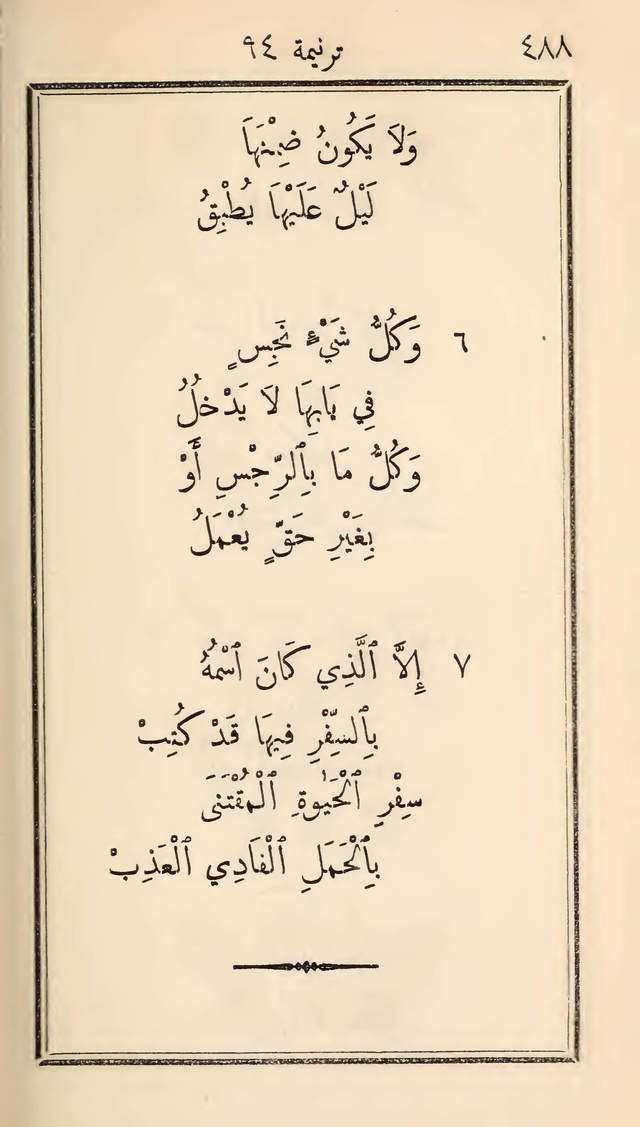 ٤٨٨ ترنيمة ٩٤
وَلَا يَكُونُ ضِمْنَهَا
لَيْلٌ عَلَيْهَا يُطْبِقُ
٦ وَكُلُّ شَيْءٍ نَجِسٍ
فِي بَابِهَا لَا يَدْخُلُ
وَكُلُّ مَا بِٱلرِّجْسِ أَوْ
بِغَيْرِ حَقٍّ يُعْمَلُ
٧ إِلَّا ٱلَّذِي كَانَ ٱسْمُهُ
بِٱلسِّفْرِ فِيهَا قَدْ كُتِبْ
سِفْرِ ٱلْحَيٰوةِ ٱلْمُقْتَنَى
بِٱلْحَمَلِ ٱلْفَادِي ٱلْعَذِبْ